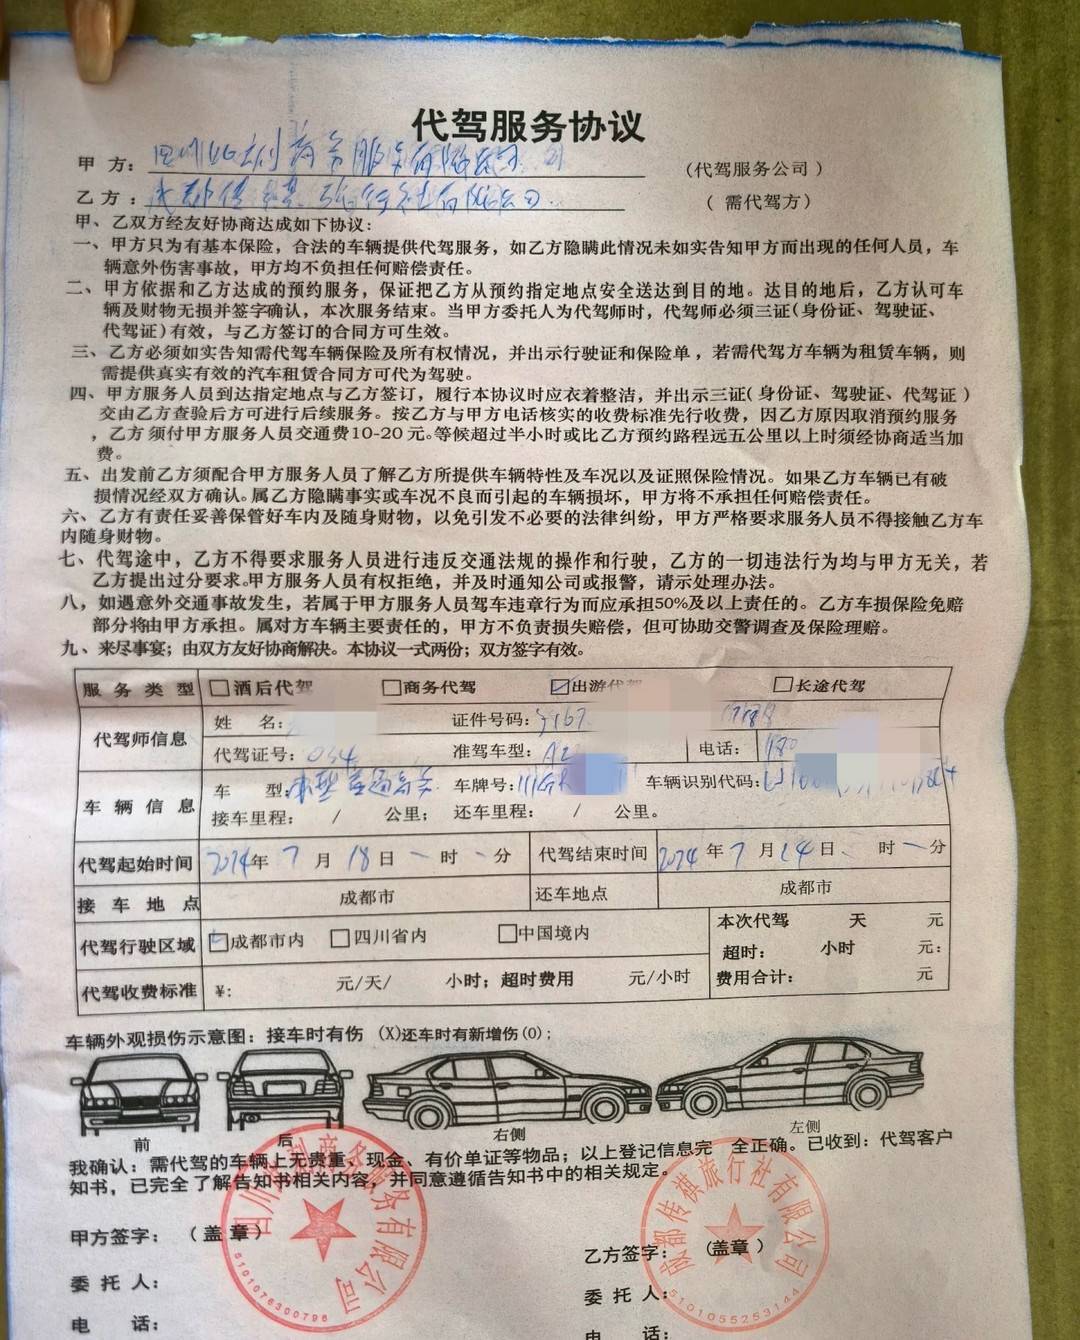 代驾服务协议
甲 方： 四川 商务服务有限公司 (代驾服务公司 )
乙 方： 成都传棋旅行社有限公司 ( 需代驾方)
甲、乙双方经友好协商达成如下协议：
一、甲方只为有基本保险，合法的车辆提供代驾服务，如乙方隐瞒此情况未如实告知甲方而出现的任何人员，车
辆意外伤害事故，甲方均不负担任何赔偿责任。
二、甲方依据和乙方达成的预约服务，保证把乙方从预约指定地点安全送达到目的地。达目的地后，乙方认可车
辆及财物无损并签字确认，本次服务结束。当甲方委托人为代驾师时，代驾师必须三证(身份证、驾驶证、
代驾证)有效，与乙方签订的合同方可生效。
三、乙方必须如实告知需代驾车辆保险及所有权情况，并出示行驶证和保险单，若需代驾方车辆为租赁车辆，则
需提供真实有效的汽车租赁合同方可代为驾驶。
四、甲方服务人员到达指定地点与乙方签订，履行本协议时应衣着整洁，并出示三证( 身份证、驾驶证、代驾证 )
交由乙方查验后方可进行后续服务。按乙方与甲方电话核实的收费标准先行收费，因乙方原因取消预约服务
，乙方须付甲方服务人员交通费10-20 元。等候超过半小时或比乙方预约路程远五公里以上时须经协商适当加
费。
五、出发前乙方须配合甲方服务人员了解乙方所提供车辆特性及车况以及证照保险情况。如果乙方车辆已有破
损情况经双方确认。属乙方隐瞒事实或车况不良而引起的车辆损坏，甲方将不承担任何赔偿责任。
六、乙方有责任妥善保管好车内及随身财物，以免引发不必要的法律纠纷，甲方严格要求服务人员不得接触乙方车
内随身财物。
七、代驾途中，乙方不得要求服务人员进行违反交通法规的操作和行驶，乙方的一切违法行为均与甲方无关，若
乙方提出过分要求。甲方服务人员有权拒绝，并及时通知公司或报警，请示处理办法。
八，如遇意外交通事故发生，若属于甲方服务人员驾车违章行为而应承担50%及以上责任的。乙方车损保险免赔
部分将由甲方承担。属对方车辆主要责任的，甲方不负责损失赔偿，但可协助交警调查及保险理赔。
九、来尽事宴；由双方友好协商解决。本协议一式两份；双方签字有效。
服 务 类 型 □酒后代驾 □商务代驾 ☑出游代驾 □长途代驾
代驾师信息 姓 名： 证件号码：
代驾证号： 034 准驾车型：A2 电话：180
车 辆 信 息 车 型： 车牌号：川G 车辆识别代码：
接车里程： / 公里； 还车里程： / 公里。
代驾起始时间 2024年 7 月 18 日 一 时 一 分 代驾结束时间 2024 年 7 月 24 日 时 一 分
接 车 地 点 成都市 还车地点 成都市
代驾行驶区域 □成都市内 □四川省内 □中国境内 本次代驾 天 元
超时： 小时 元：
代驾收费标准 ¥： 元/天/ 小时；超时费用 元/小时 费用合计： 元
车辆外观损伤示意图：接车时有伤 (X)还车时有新增伤(O)；
前 后 右侧 左侧
我确认：需代驾的车辆上无贵重、现金、有价单证等物品；以上登记信息完 全正确。已收到：代驾客户
知书，已完全了解告知书相关内容，并同意遵循告知书中的相关规定。
甲方签字： （盖 章） 乙方签字： （盖章 ）
委 托 人： 委 托 人：
电 话： 电 话：
四川 商务服务有限公司
5101076300796
成都传棋旅行社有限公司
5101055253144